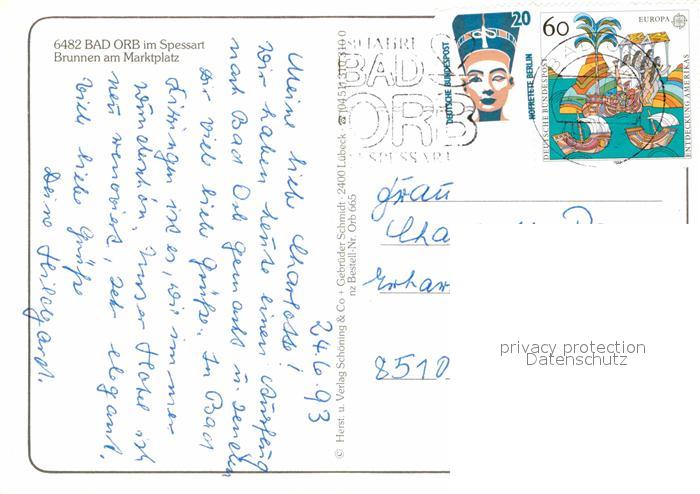 6482 BAD ORB im Spessart
Brunnen am Marktplatz
24.6.93
Meine liebe Charlotte!
Wir haben heute einen Ausflug
nach Bad Orb gemacht u. senden
Dir viele liebe Grüße. In Bad
Kissingen ist es, wie immer
wunderschön. Unser Hotel ist
neu renoviert, sehr elegant.
Viele liebe Grüße
Deine Hildegard.
© Herst. u. Verlag Schöning & Co + Gebrüder Schmidt · 2400 Lübeck · ☎ (0451) 310 310
nz Bestell-Nr. Orb 665
JAHRE
BAD
ORB
SPESSART
20
DEUTSCHE BUNDESPOST
NOFRETETE BERLIN
60
EUROPA
DEUTSCHE BUNDESPOST
ENTDECKUNG AMERIKAS
Frau
Cha
Erhar
8510
privacy protection
Datenschutz